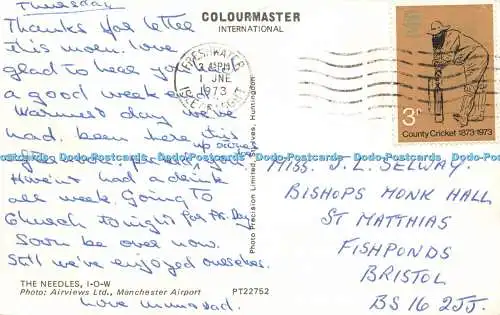 Thursday
Thanks for letter
this morn. Love
glad to hear you had
a good weekend
Warmest day we've
had been here this
Haven't had a drink
all week. Going to
Church tonight for As. Day
Soon be over now.
Still we've enjoyed ourselves.
THE NEEDLES, I-O-W
Photo: Airviews Ltd., Manchester Airport
PT22752
Love mum & dad.
COLOURMASTER
INTERNATIONAL
FRESHWATER
PM
1 JNE
1973
ISLE OF WIGHT
Photo Precision Limited, St. Ives, Huntingdon
3p
County Cricket 1873-1973
MISS. J. L. SELWAY.
BISHOPS MONK HALL
ST MATTHIAS
FISHPONDS
BRISTOL
BS16 2JJ.
www.postcards-Stamps.com